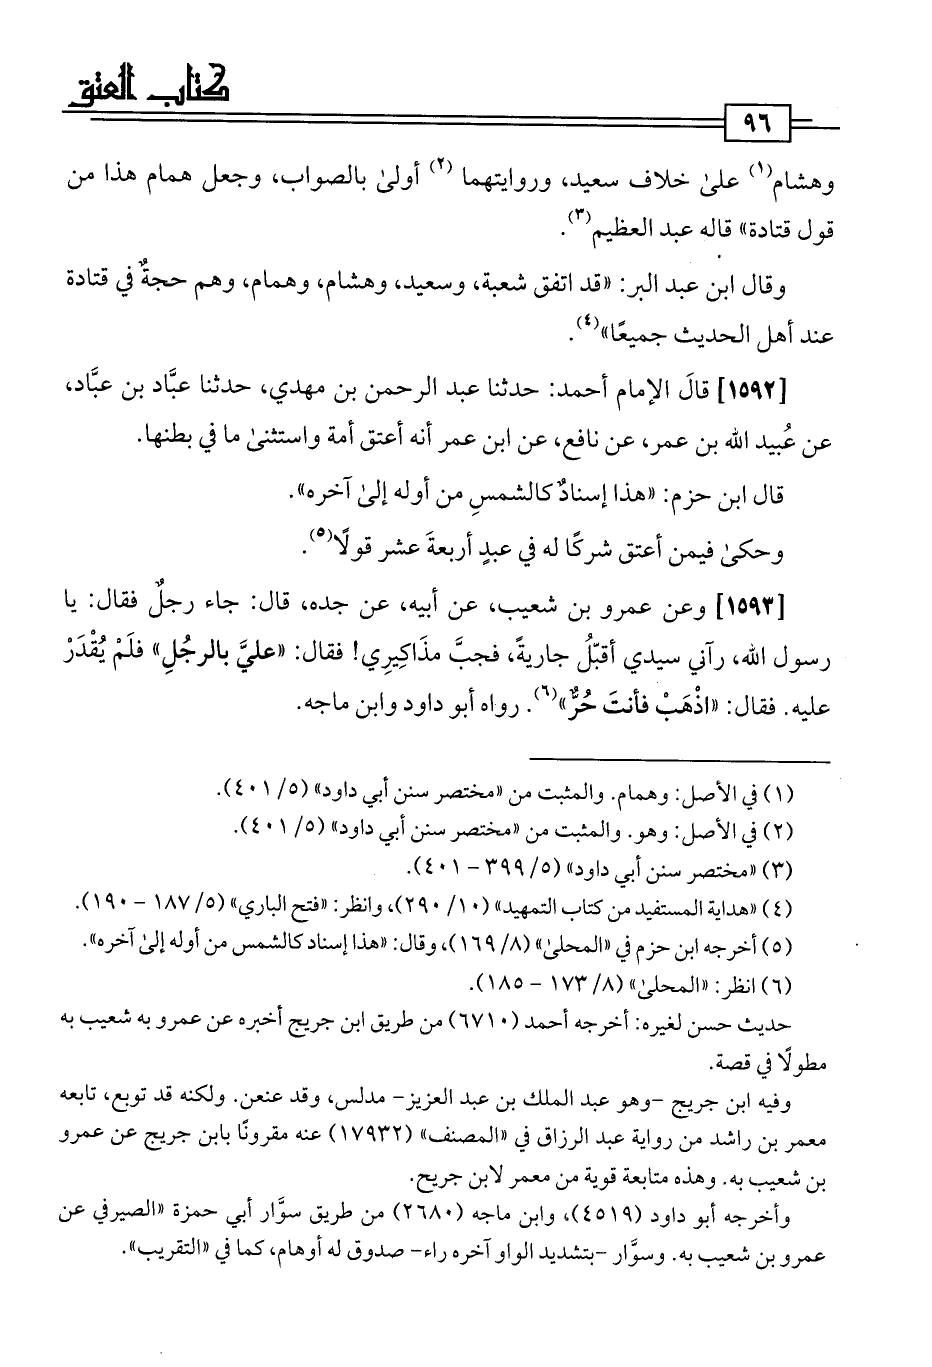 كتاب العتق
٩٦
وهشام(١) علىٰ خلاف سعيد، وروايتهما (٢) أولىٰ بالصواب، وجعل همام هذا من
قول قتادة» قاله عبد العظيم(٣).
وقال ابن عبد البر: «قد اتفق شعبة، وسعيد، وهشام، وهمام، وهم حجةٌ في قتادة
عند أهل الحديث جميعًا»(٤).
[١٥٩٢] قالَ الإمام أحمد: حدثنا عبد الرحمن بن مهدي، حدثنا عبَّاد بن عبَّاد،
عن عُبيد الله بن عمر، عن نافع، عن ابن عمر أنه أعتق أمة واستثنىٰ ما في بطنها.
قال ابن حزم: «هذا إسنادٌ كالشمسِ من أوله إلىٰ آخره».
وحكىٰ فيمن أعتق شركًا له في عبدٍ أربعةَ عشر قولًا(٥).
[١٥٩٣] وعن عمرو بن شعيب، عن أبيه، عن جده، قال: جاء رجلٌ فقال: يا
رسول الله، رآني سيدي أقبّلُ جاريةً، فجبَّ مذَاكيرِي! فقال: «عليَّ بالرجُلِ» فلَمْ يُقْدَرْ
عليه. فقال: «اذْهَبْ فأنتَ حُرٌّ»(٦). رواه أبو داود وابن ماجه.
(١) في الأصل: وهمام. والمثبت من «مختصر سنن أبي داود» (٥/ ٤٠١).
(٢) في الأصل: وهو. والمثبت من «مختصر سنن أبي داود» (٥/ ٤٠١).
(٣) «مختصر سنن أبي داود» (٥/ ٣٩٩ – ٤٠١).
(٤) «هداية المستفيد من كتاب التمهيد» (١٠/ ٢٩٠)، وانظر: «فتح الباري» (٥/ ١٨٧ – ١٩٠).
(٥) أخرجه ابن حزم في «المحلىٰ» (٨/ ١٦٩)، وقال: «هذا إسناد كالشمس من أوله إلىٰ آخره».
(٦) انظر: «المحلىٰ» (٨/ ١٧٣ – ١٨٥).
حديث حسن لغيره: أخرجه أحمد (٦٧١٠) من طريق ابن جريج أخبره عن عمرو به شعيب به
مطولًا في قصة.
وفيه ابن جريج -وهو عبد الملك بن عبد العزيز- مدلس، وقد عنعن. ولكنه قد توبع، تابعه
معمر بن راشد من رواية عبد الرزاق في «المصنف» (١٧٩٣٢) عنه مقرونًا بابن جريج عن عمرو
بن شعيب به. وهذه متابعة قوية من معمر لابن جريح.
وأخرجه أبو داود (٤٥١٩)، وابن ماجه (٢٦٨٠) من طريق سوَّار أبي حمزة «الصيرفي عن
عمرو بن شعيب به. وسوَّار -بتشديد الواو آخره راء- صدوق له أوهام، كما في «التقريب».